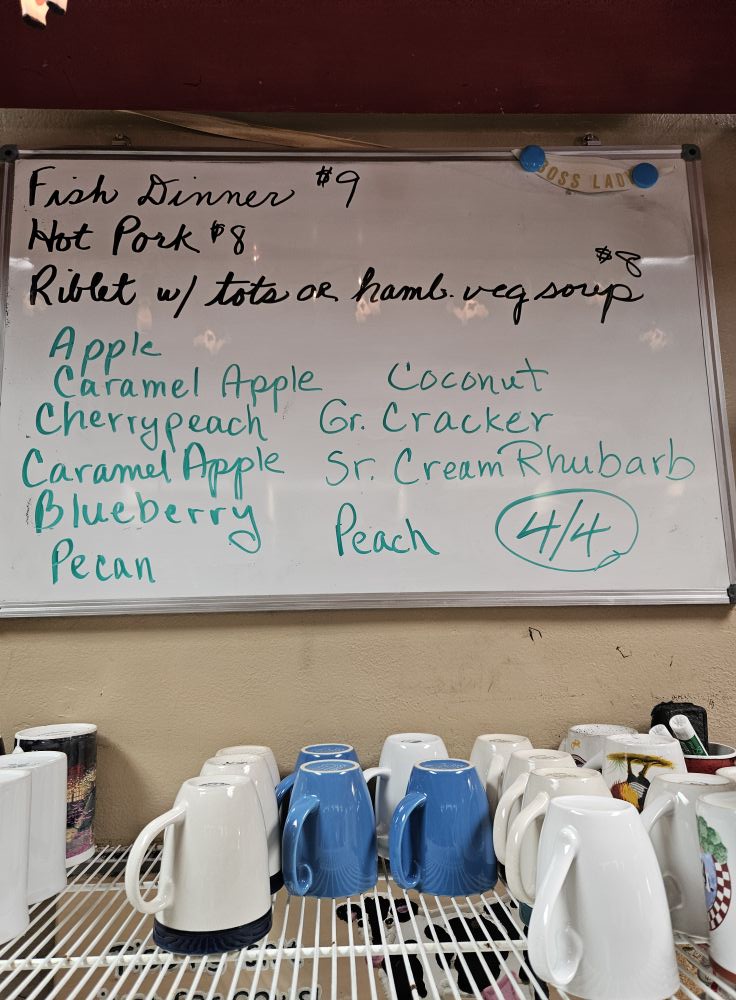 BOSS LADY
Fish Dinner $9
Hot Pork $8
Riblet w/ tots OR hamb. veg soup $8
Apple
Caramel Apple
Cherrypeach
Caramel Apple
Blueberry
Pecan
Coconut
Gr. Cracker
Sr. Cream Rhubarb
Peach
4/4